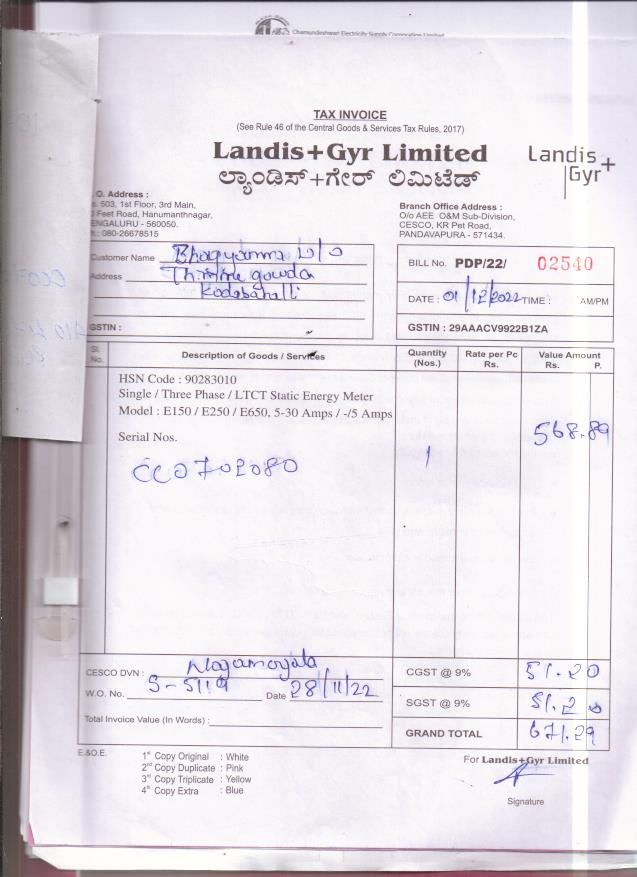 Chamundeshwari Electricity Supply Corporation Limited
TAX INVOICE
(See Rule 46 of the Central Goods & Services Tax Rules, 2017)
Landis+Gyr Limited
ಲ್ಯಾಂಡಿಸ್+ಗೇರ್ ಲಿಮಿಟೆಡ್
Landis+
Gyr
O. Address :
503, 1st Floor, 3rd Main,
Feet Road, Hanumanthnagar,
ENGALURU - 560050.
080-26678515
Branch Office Address :
O/o AEE O&M Sub-Division,
CESCO, KR Pet Road,
PANDAVAPURA - 571434.
Customer Name Bhagyamma
Address Thimme gowda
Kodabahalli
GSTIN :
BILL No. PDP/22/ 02540
DATE : 01/12/2022 TIME : AM/PM
GSTIN : 29AAACV9922B1ZA
Sl. No. Description of Goods / Services Quantity (Nos.) Rate per Pc Rs. Value Amount Rs. P.
HSN Code : 90283010
Single / Three Phase / LTCT Static Energy Meter
Model : E150 / E250 / E650, 5-30 Amps / -/5 Amps
Serial Nos. 568.89
CC0702080 1
CESCO DVN : Nagamangala
W.O. No. S-5119 Date 28/11/22
Total Invoice Value (In Words) :
CGST @ 9% 51.20
SGST @ 9% 51.20
GRAND TOTAL 671.29
E.&O.E.
1st Copy Original : White
2nd Copy Duplicate : Pink
3rd Copy Triplicate : Yellow
4th Copy Extra : Blue
For Landis+Gyr Limited
Signature